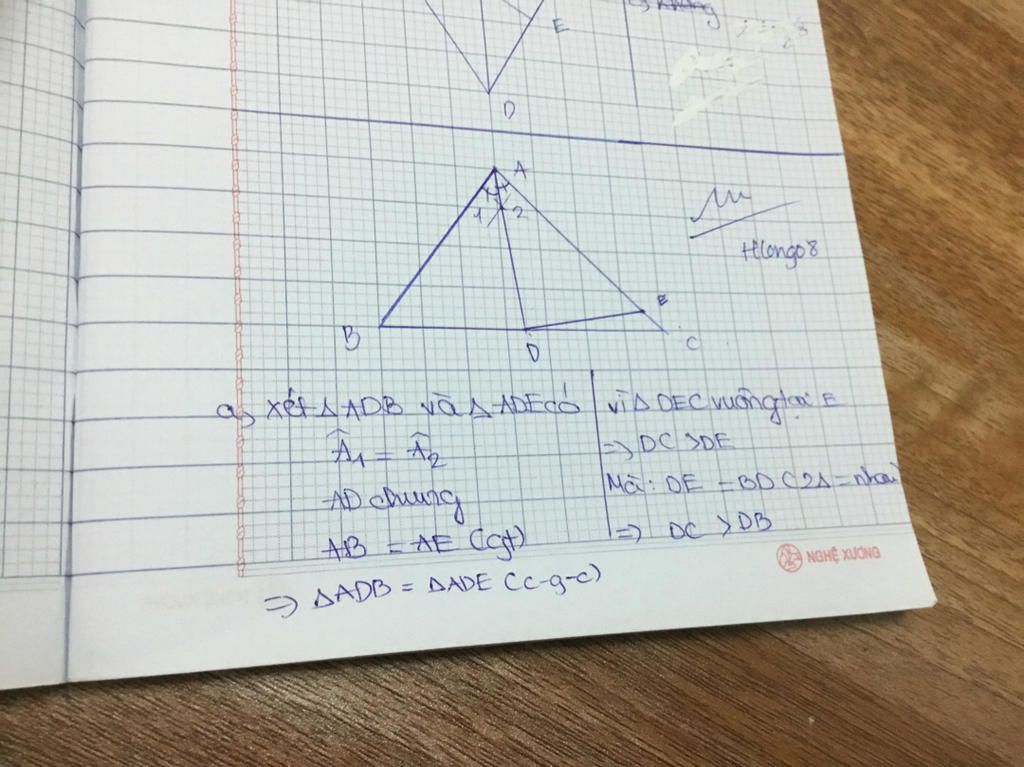 E
D
A
1 2
Hlong08
E
B
D
C
a) xét Δ ADB và Δ ADE có
Â1 = Â2
AD chung
AB = AE (gt)
=> ΔADB = ΔADE (c-g-c)
vì Δ DEC vuông tại E
=> DC > DE
Mà: DE = BD (2Δ = nhau
=> DC > DB
NGHỆ XƯƠNG